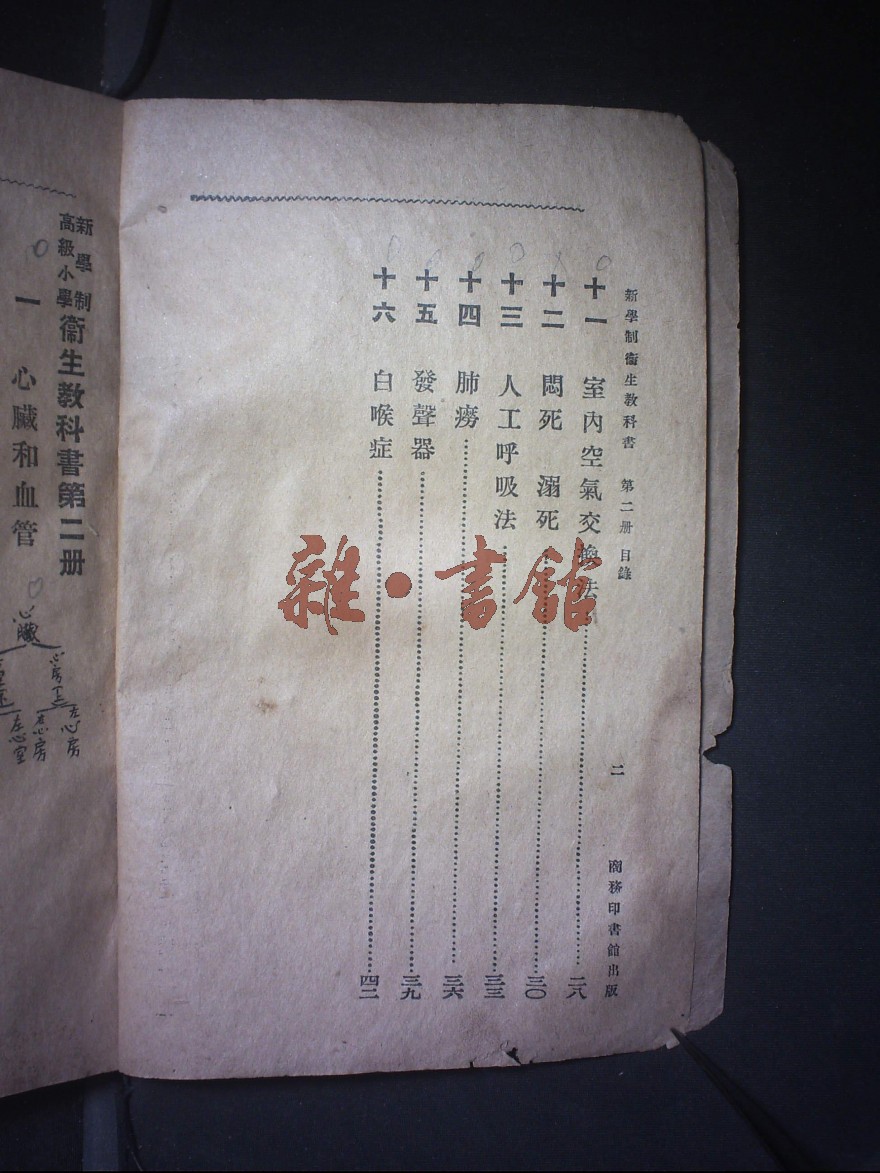 新學制衞生教科書 第二册 目錄 二 商務印書館出版
十一 室內空氣交換法 二八
十二 悶死 溺死 三〇
十三 人工呼吸法 三三
十四 肺癆 三六
十五 發聲器 三九
十六 白喉症 四二
雜·書館
新學制
高級小學
衞生教科書第二册
一 心臟和血管
心臟
心房
左心房
右心房
左心室